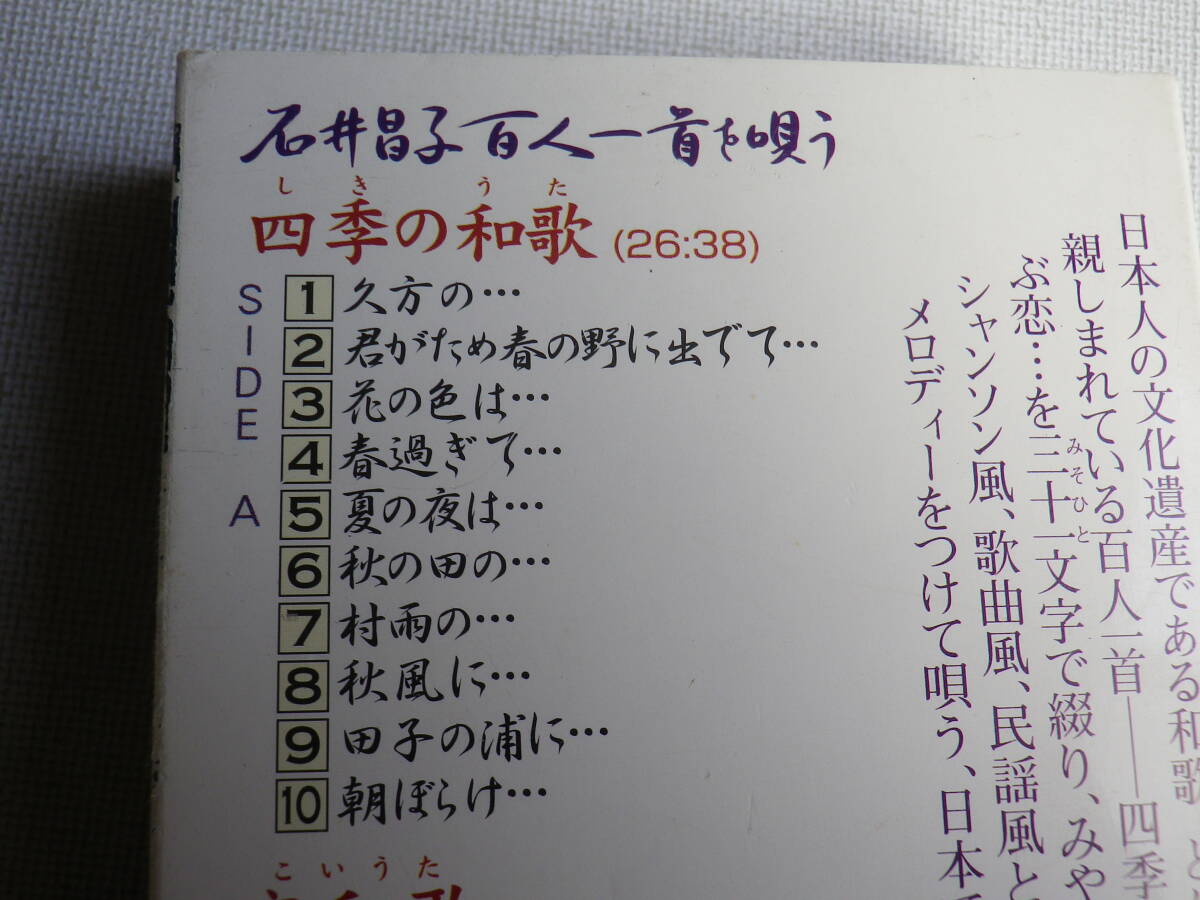 石井昌子 百人一首を唄う
しき うた
四季の和歌 (26:38)
SIDE A
1 久方の…
2 君がため春の野に出でて…
3 花の色は…
4 春過ぎて…
5 夏の夜は…
6 秋の田の…
7 村雨の…
8 秋風に…
9 田子の浦に…
10 朝ぼらけ…
こいうた
歌
日本人の文化遺産である和歌
親しまれている百人一首――四季
ぶ恋…を三十一文字で綴り、みや
みそひと
シャンソン風、歌曲風、民謡風と
メロディーをつけて唄う、日本で